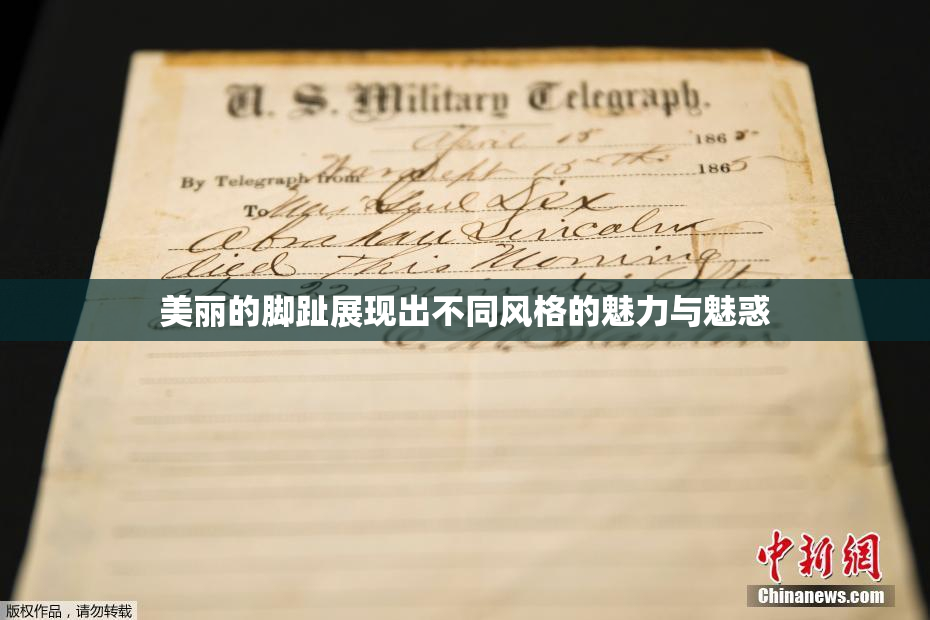 U. S. Military Telegraph.
April 15 1865
By Telegraph from War Dept 15th 1865
To Maj Genl Dix
Abraham Lincoln
died This Morning
at 22 minutes after
美丽的脚趾展现出不同风格的魅力与魅惑
E. M. Stanton
中新網
Chinanews.com
版权作品,请勿转载